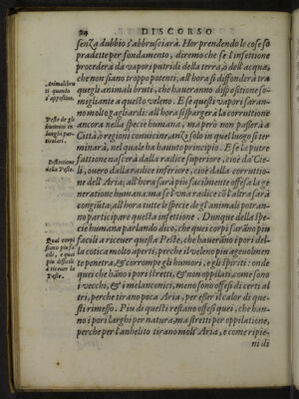 24 DISCORSO
senza dubbio s'abbrusciarà. Hor prendendo le cose so
pradette per fondamento, diremo che se l'infettione
procederà da vapori putridi della terra, ò dell'acqua,
che non siano troppo potenti, all'hora si diffonderà tra
quegli animali bruti, che haueranno dispositione so-
migliante a questo veleno. E se questi vapori saran-
no molto gagliardi: all'hora si spargerà la corruttione
ancora nella specie humana, ma però non passerà a
Città, ò regioni conuicine, anzi solo in quel luogo si ter
minarà, nel quale ha hauuto principio. E se la putre
fattione nascerà dalla radice superiore, cioè da' Cie-
li, ouero dalla radice inferiore, cioè dalla corruttio-
ne dell'Aria; all'hora sarà più facilmente offesa la ge
neratione humana, ma se l'una radice cõ l'altra sarà
congiũta, all'hora tutte le specie de gl'animali potran-
no participare questa infettione. Dunque della spe-
cie humana parlando dico, che quei corpi sarãno più
facili a riceuer questa Peste, che haueràno i pori del-
la cotica molto aperti, perche il veleno più ageuolmen
te penetra, & corrompe gli humori, e gli spiriti: onde
quei che hãno i pori stretti, & non oppilati, come sono
i vecchi, & i melanconici, meno sono offesi di certi al
tri, perche tirano poca Aria, per esser il calor di que-
sti rimesso. Piu di questi restano offesi quei, che han-
no i pori larghi per natura, ma stretti per oppilatione,
perche per l'anhelito tirano molt'Aria, e come ripie-
ni di
Animali bru
ti quando
s'appestino.
Peste de gli
huomini in
luoghi par-
ticulari.
della Peste.
Quai corpi
siano più fa
cili, e quai
più difficili
a riceuer la
Peste.